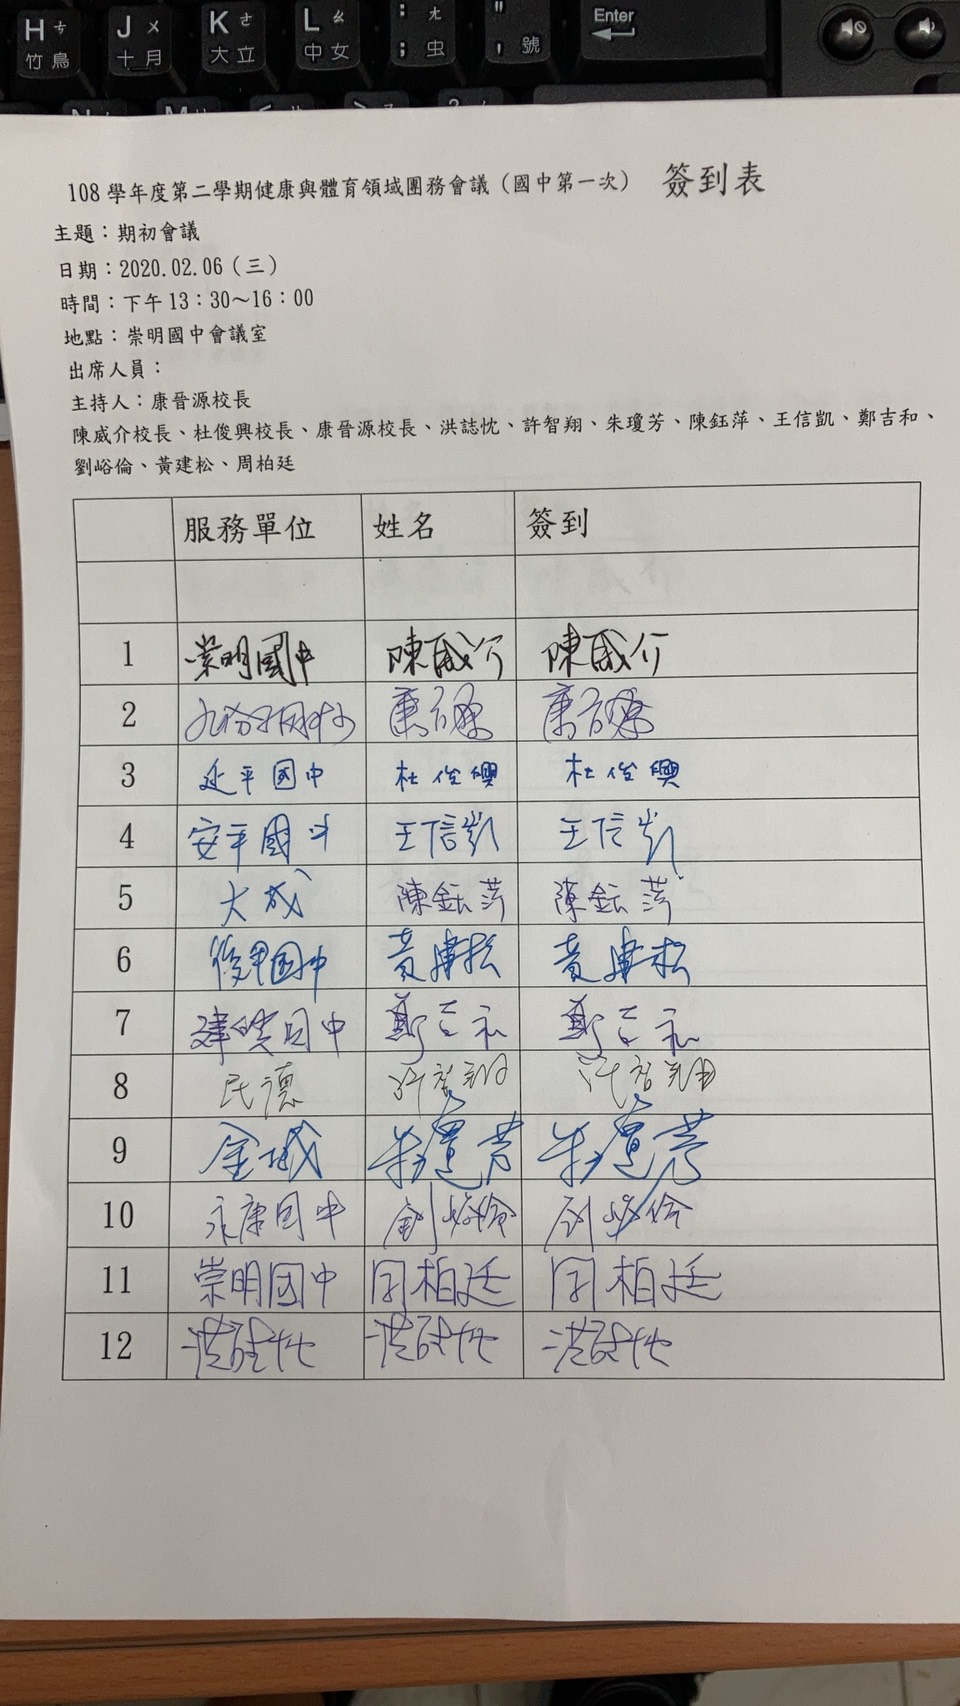 H ㄘ J ㄨ K ㄜ L ㄠ : ㄤ " Enter
竹 鳥 十 月 大 立 中 女 ; 虫 , 號
108 學年度第二學期健康與體育領域團務會議（國中第一次） 簽到表
主題：期初會議
日期：2020.02.06（三）
時間：下午 13：30～16：00
地點：崇明國中會議室
出席人員：
主持人：康晉源校長
陳威介校長、杜俊興校長、康晉源校長、洪誌忱、許智翔、朱瓊芳、陳鈺萍、王信凱、鄭吉和、
劉峪倫、黃建松、周柏廷
服務單位 姓名 簽到
1 崇明國中 陳威介 陳威介
2 康晉源 康晉源
3 延平國中 杜俊興 杜俊興
4 安平國中 王信凱 王信凱
5 大成 陳鈺萍 陳鈺萍
6 後甲國中 黃建松 黃建松
7 建興國中 鄭吉和 鄭吉和
8 民德 許智翔 許智翔
9 金城 朱瓊芳 朱瓊芳
10 永康國中 劉峪倫 劉峪倫
11 崇明國中 周柏廷 周柏廷
12 洪誌忱 洪誌忱 洪誌忱